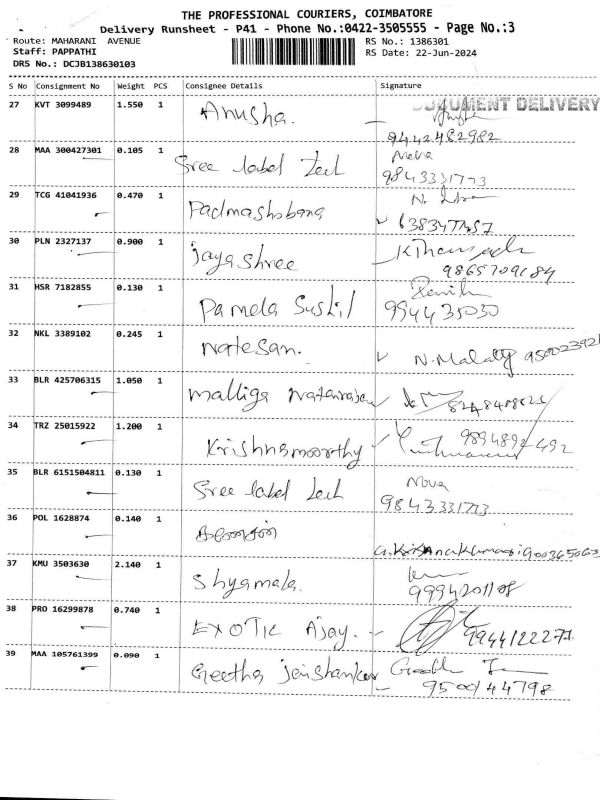 THE PROFESSIONAL COURIERS, COIMBATORE
Delivery Runsheet - P41 - Phone No.:0422-3505555 - Page No.:3
Route: MAHARANI AVENUE RS No.: 1386301
Staff: PAPPATHI RS Date: 22-Jun-2024
DRS No.: DCJB138630103
S No Consignment No Weight PCS Consignee Details Signature
DOCUMENT DELIVERY
27 KVT 3099489 1.550 1 Anusha.
9442482982
28 MAA 300427301 0.105 1 Sree label Tech
9843331773
29 TCG 41041936 0.470 1 Padmashobana
30 PLN 2327137 0.900 1 jayashree
31 HSR 7182855 0.130 1 Pamela Sushil
994435030
32 NKL 3389102 0.245 1 Natesan. N. Malaty
33 BLR 425706315 1.050 1 Malliga Natarajan
34 TRZ 25015922 1.200 1 Krishnamoorthy 9894892492
35 BLR 6151504811 0.130 1 Sree label Tech
9843331773
36 POL 1628874 0.140 1
37 KMU 3503630 2.140 1 Shyamala.
9994201108
38 PRO 16299878 0.740 1 EXOTIC Ajay.
9944122271
39 MAA 105761399 0.090 1 Geetha jaishankar
9500144798